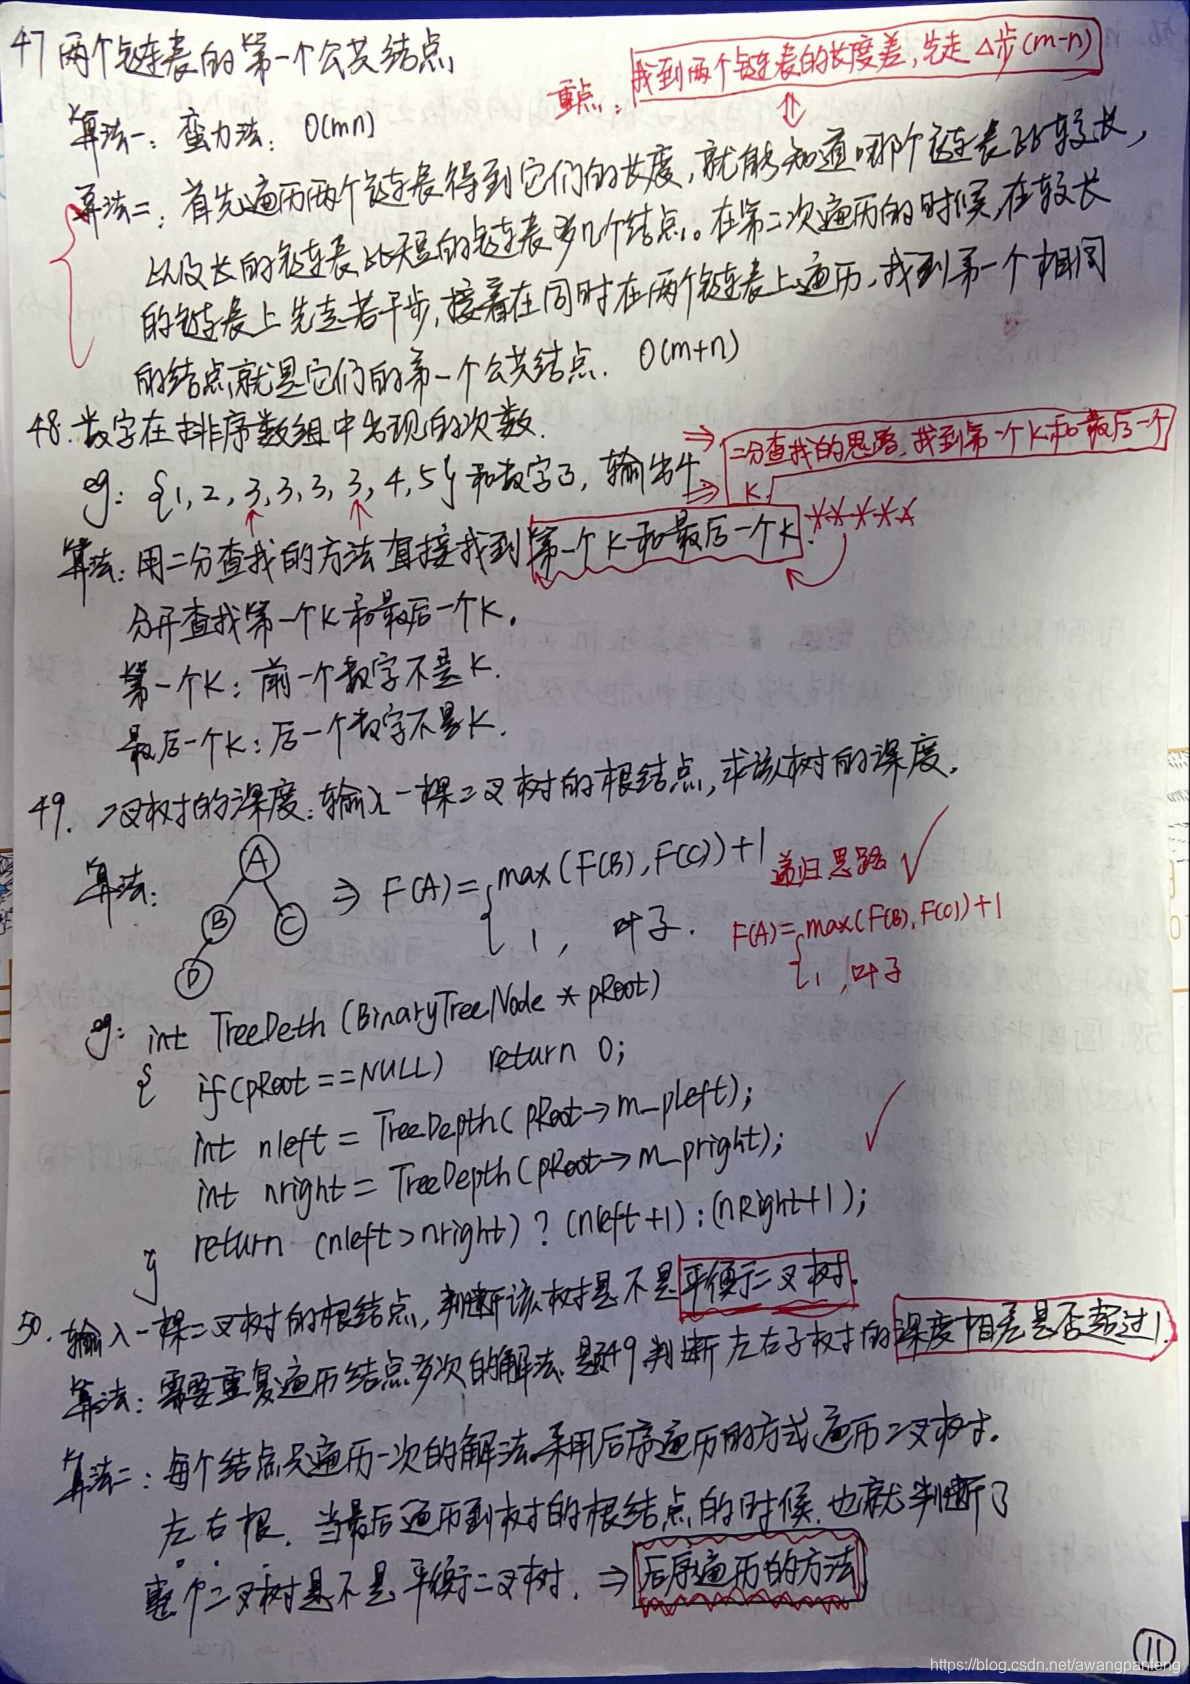 47 两个链表的第一个公共结点
重点: 找到两个链表的长度差,先走△步(m-n)
算法一: 蛮力法: O(mn)
算法二: 首先遍历两个链表得到它们的长度,就能知道哪个链表比较长,
以及长的链表比短的链表多几个结点。在第二次遍历的时候,在较长
的链表上先走若干步,接着在同时在两个链表上遍历,找到第一个相同
的结点就是它们的第一个公共结点. O(m+n)
48. 数字在排序数组中出现的次数.
eg: {1, 2, 3, 3, 3, 3, 4, 5} 和数字3, 输出4 ⇒ 二分查找的思路,找到第一个K和最后一个
⇒ K.
算法: 用二分查找的方法直接找到第一个K和最后一个K.
分开查找第一个K和最后一个K.
第一个K: 前一个数字不是K.
最后一个K: 后一个数字不是K.
49. 二叉树的深度: 输入一棵二叉树的根结点,求该树的深度.
算法:
A
B
C
D
⇒ F(A)={ max(F(B), F(C))+1
1, 叶子.
递归思路 √
F(A)={ max(F(B), F(C))+1
1, 叶子
eg: int TreeDeth (BinaryTreeNode * pRoot)
{ if(pRoot==NULL) return 0;
int nleft = TreeDepth( pRoot→m_pleft);
int nright = TreeDepth(pRoot→m_pright);
return (nleft>nright) ? (nleft+1) : (nRight+1);
}
50. 输入一棵二叉树的根结点,判断该树是不是平衡二叉树.
算法: 需要重复遍历结点多次的解法. 题49 判断左右子树的深度相差是否超过1.
算法二: 每个结点只遍历一次的解法.采用后序遍历的方式遍历二叉树.
左右根. 当最后遍历到树的根结点的时候,也就判断了
整个二叉树是不是平衡二叉树. ⇒ 后序遍历的方法
11
https://blog.csdn.net/awangpanfeng